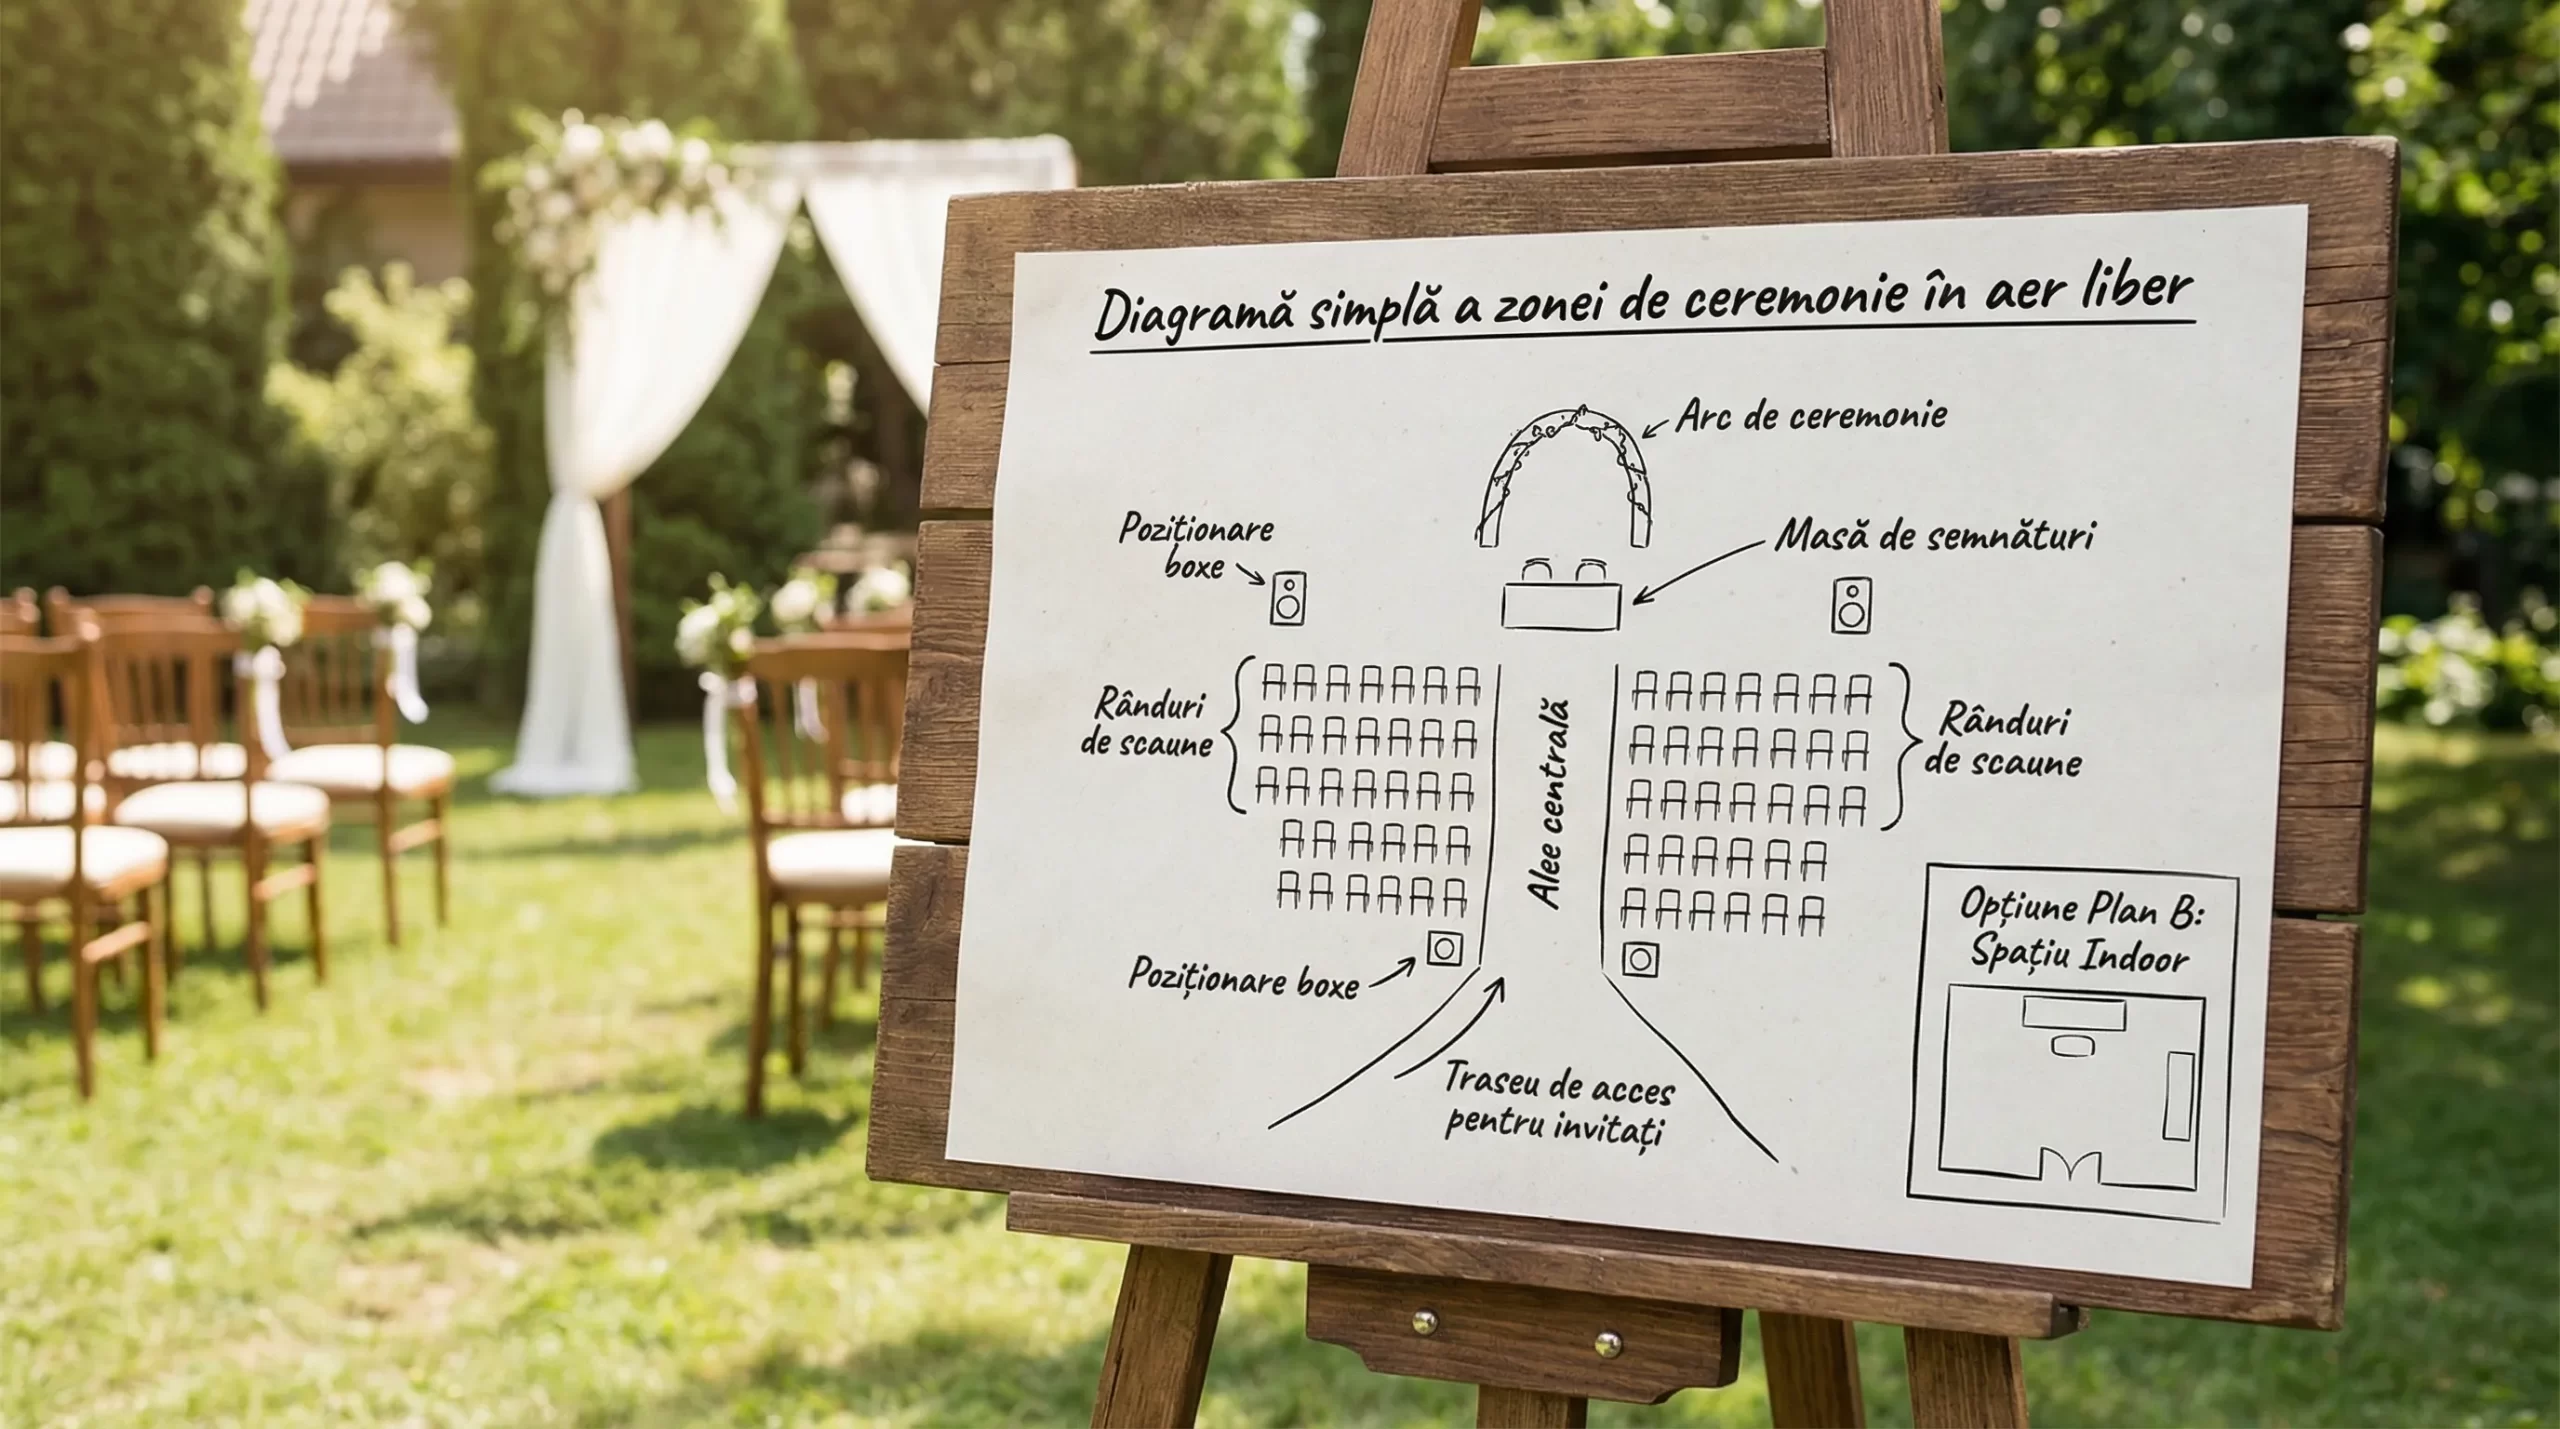 Diagramă simplă a zonei de ceremonie în aer liber
Arc de ceremonie
Poziționare
boxe
Masă de semnături
Rânduri
de scaune
Alee centrală
Rânduri
de scaune
Poziționare boxe
Traseu de acces
pentru invitați
Opțiune Plan B:
Spațiu Indoor